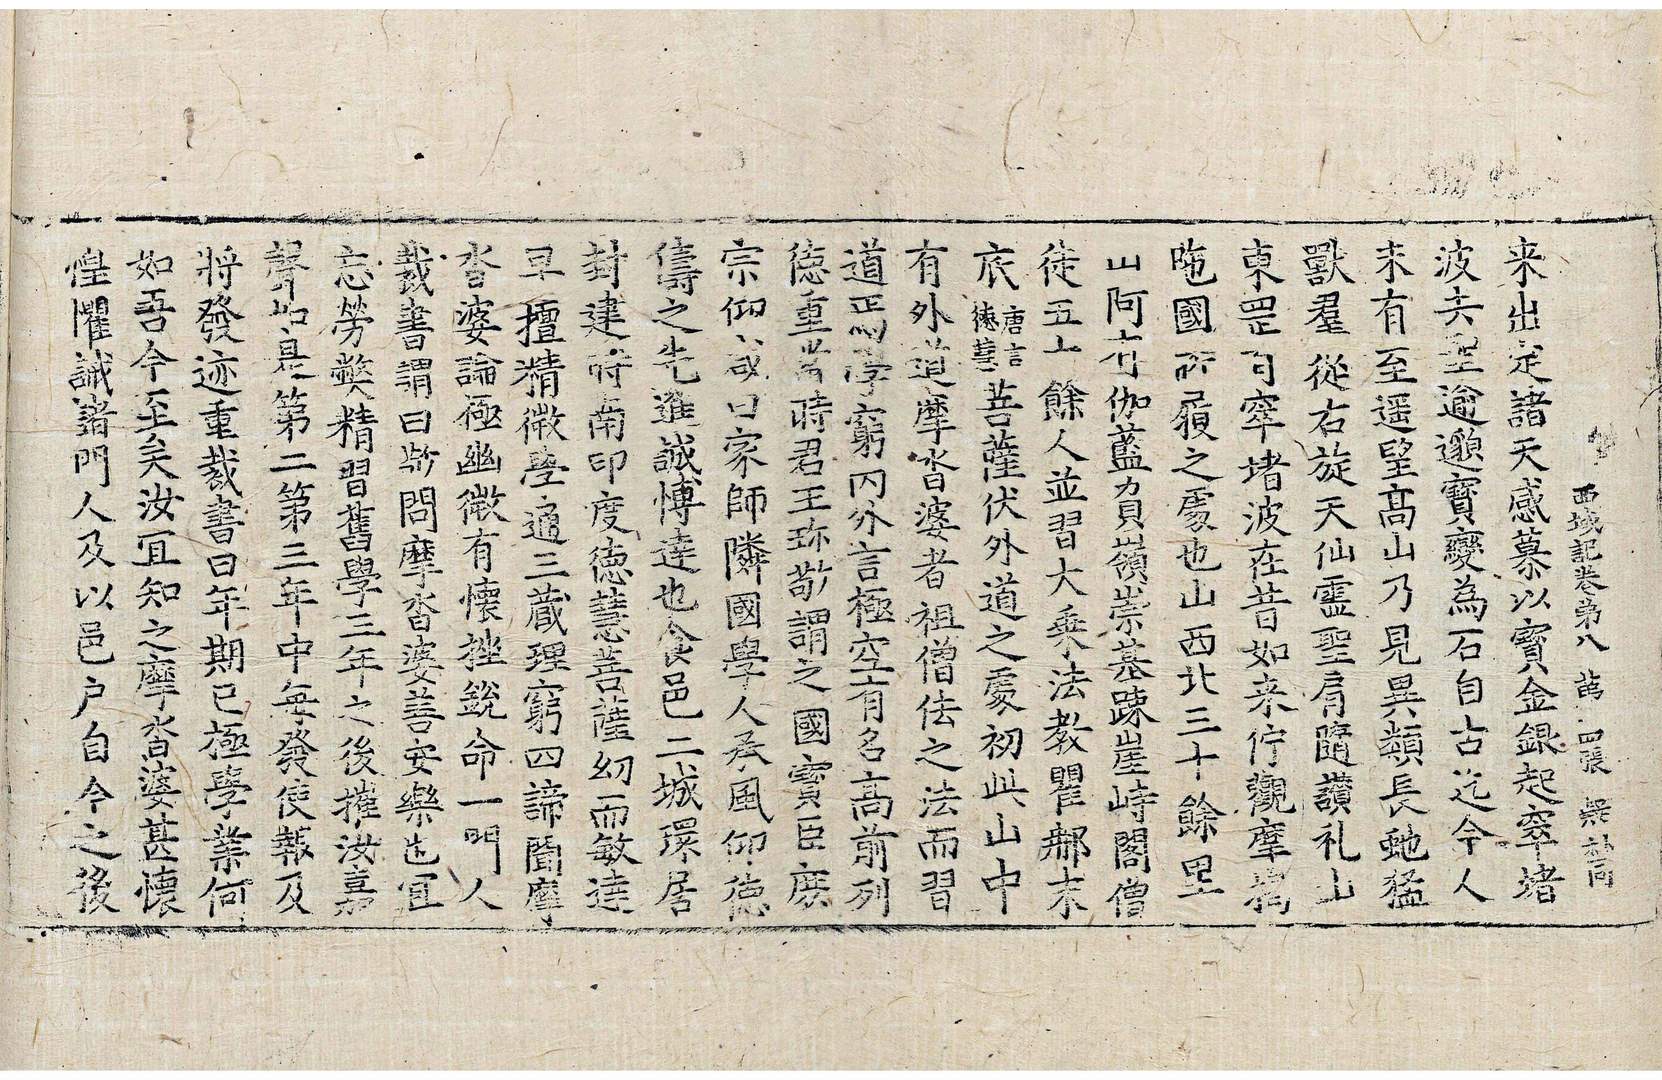 西域記卷第八 苐四張
来出定諸天感慕以寶金銀起窣堵
波去聖逾邈寶變為石自古迄今人
未有至遥望髙山乃見異類長虵猛
獸羣從右旋天仙靈聖肩隨讃礼山
東罡有窣堵波在昔如来佇觀摩揭
陁國所履之處也山西北三十餘里
山阿有伽藍負嶺崇基踈崖峙閣僧
徒五十餘人並習大乗法教瞿那末
底唐言德慧菩薩伏外道之處初此山中
有外道摩沓婆者祖僧佉之法而習
道焉學窮内外言極空有名髙前列
徳重當時君王珎敬謂之國寶臣庶
宗仰咸曰家師隣國學人承風仰徳
儔之先進誠愽達也食邑二城環居
封建時南印度徳慧菩薩幼而敏逹
早擅精微學通三藏理窮四諦聞摩
沓婆論極幽微有懷挫銳命一門人
裁書謂曰敬問摩沓婆善安樂也宜
忘勞獘精習舊學三年之後摧汝嘉
聲如是第二第三年中每發使報及
將發迹重裁書曰年期已極學業何
如吾今至矣汝冝知之摩沓婆甚懷
惶懼誡諸門人及以邑户自今之後